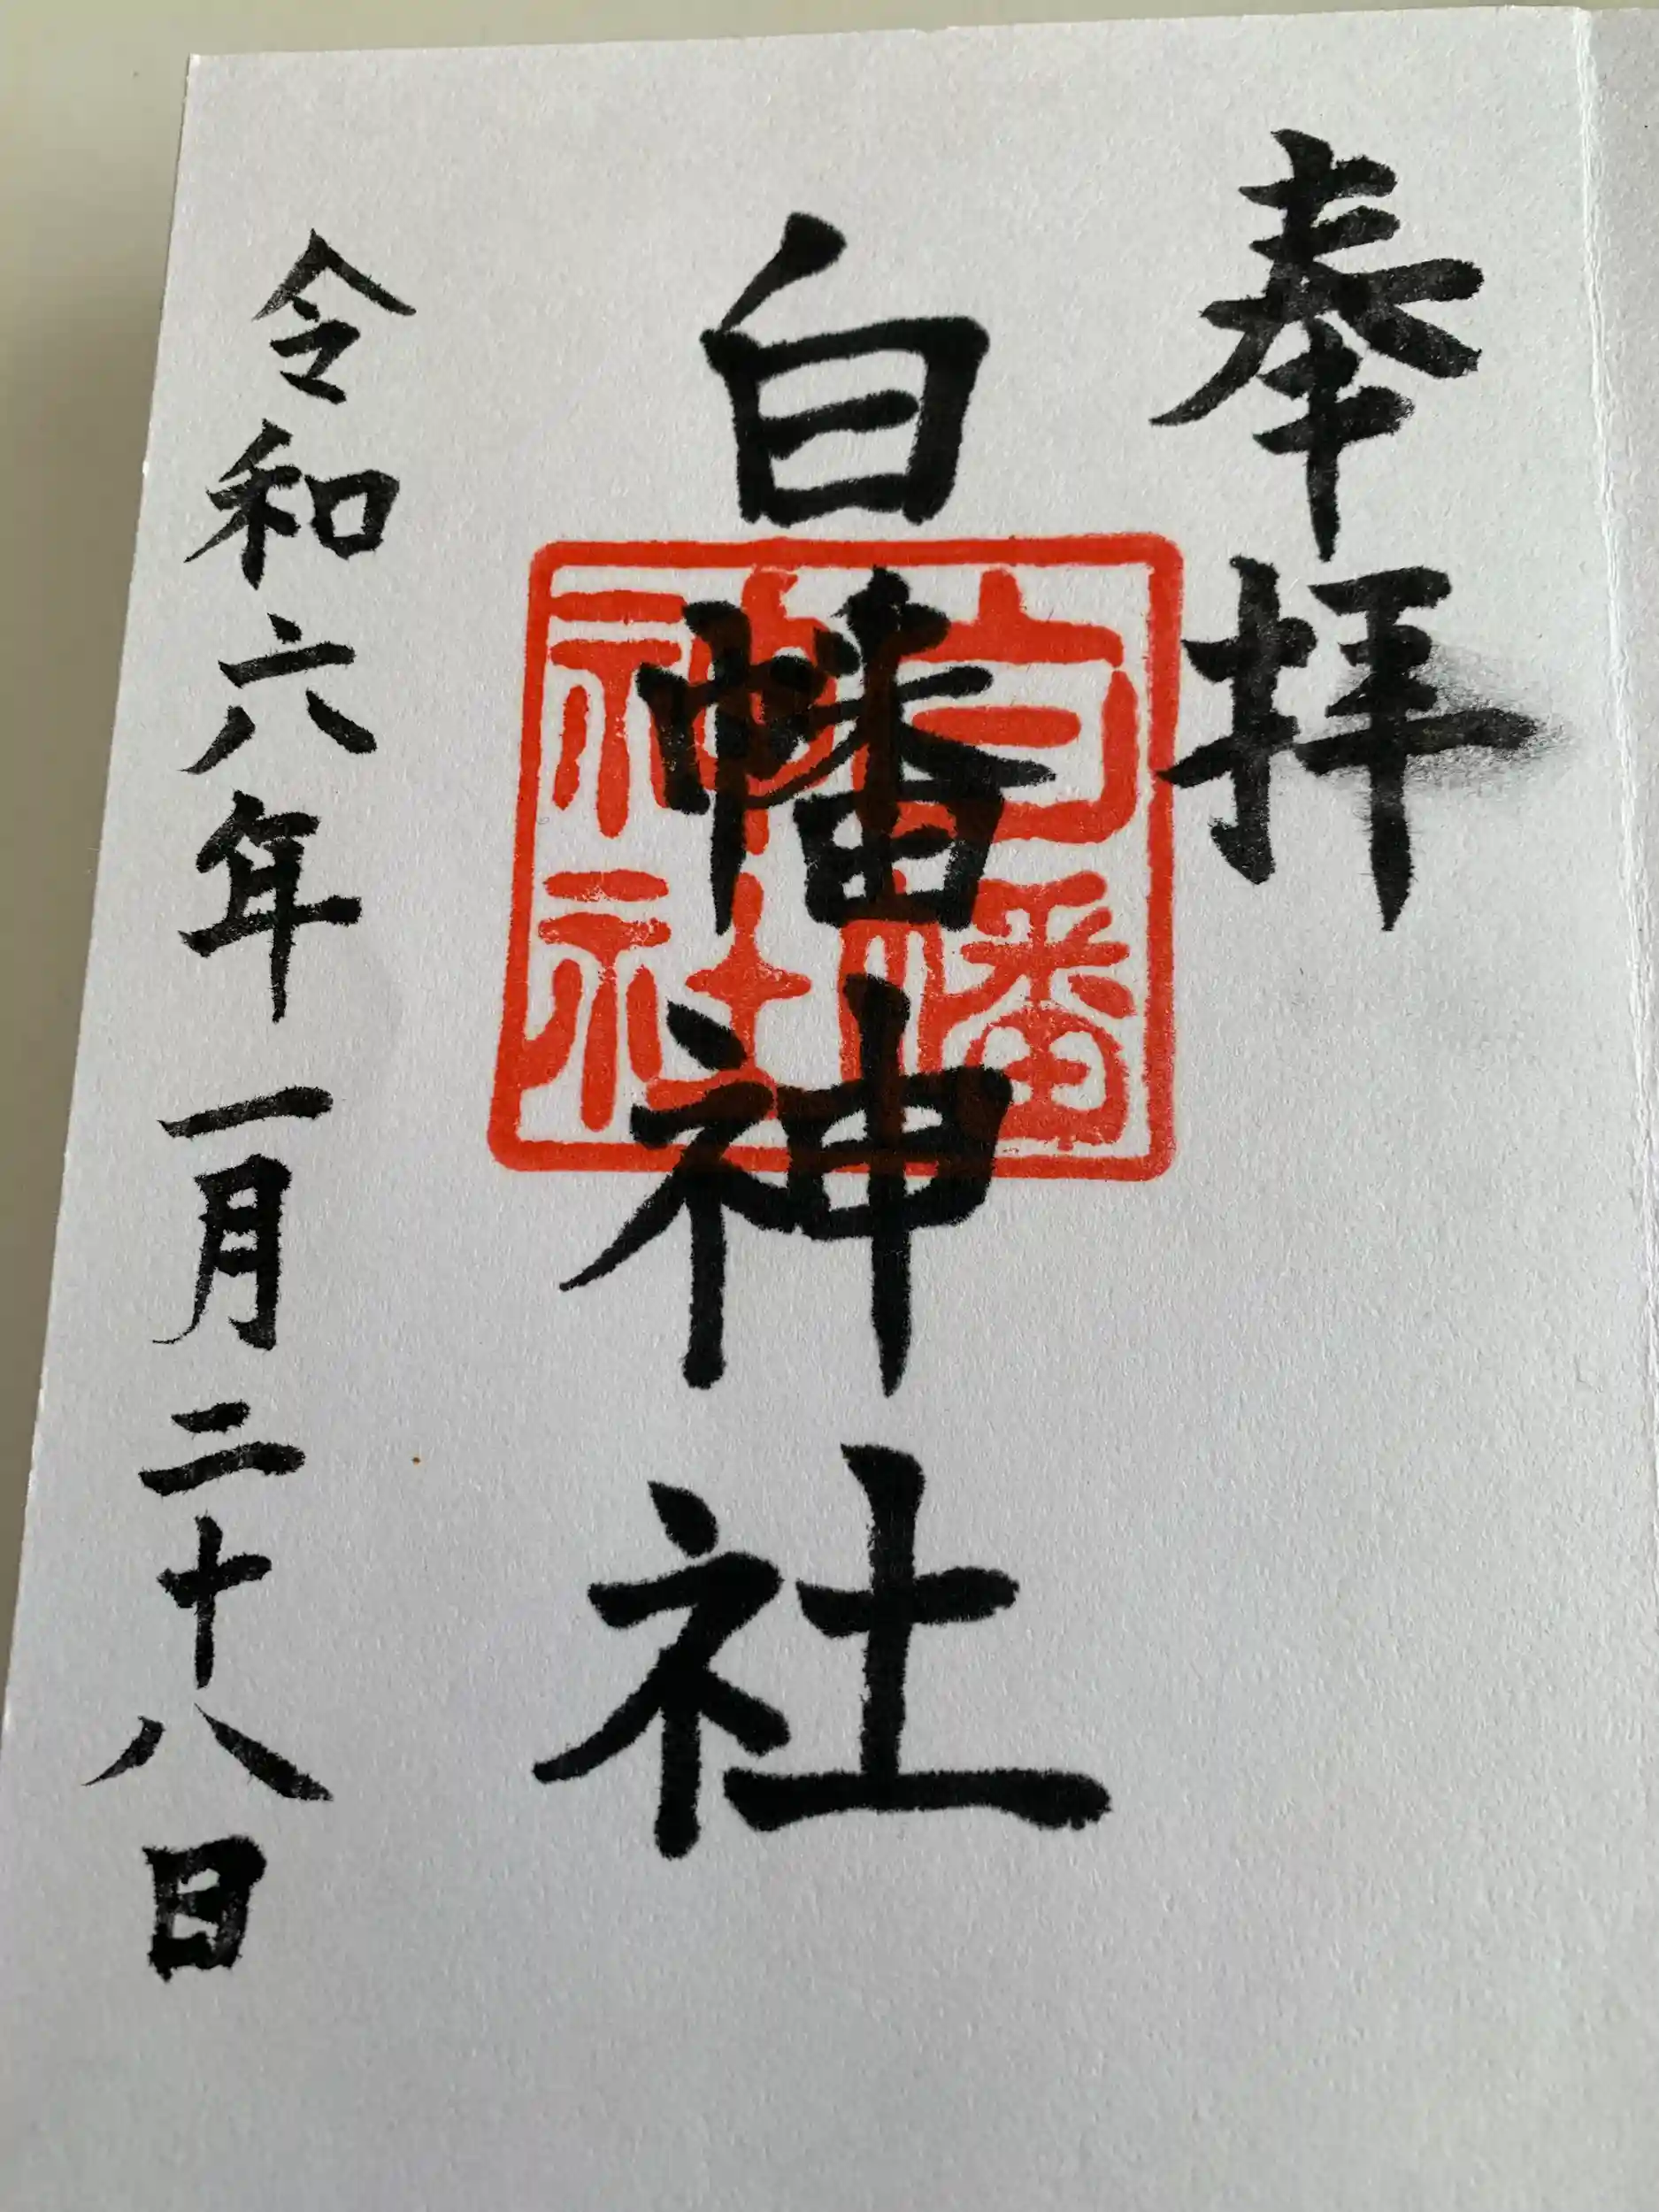 奉拝
白幡神社
白幡
神社
令和六年一月二十八日